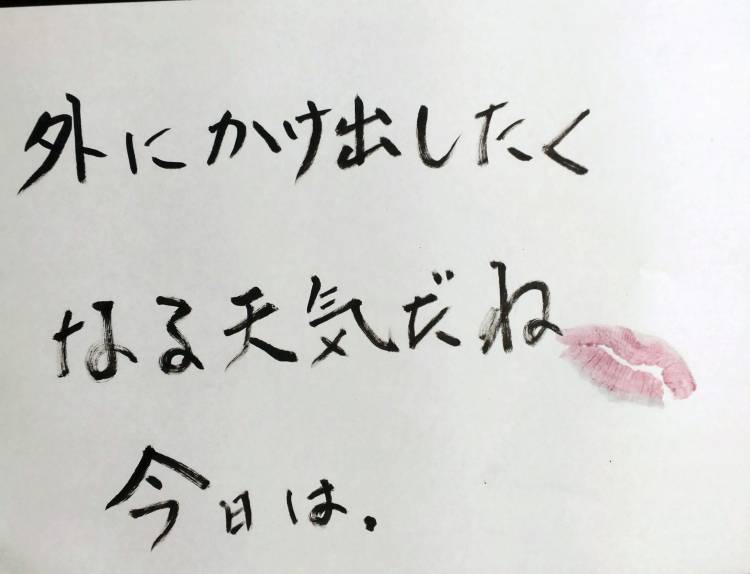 外にかけ出したく
なる天気だね
今日は.